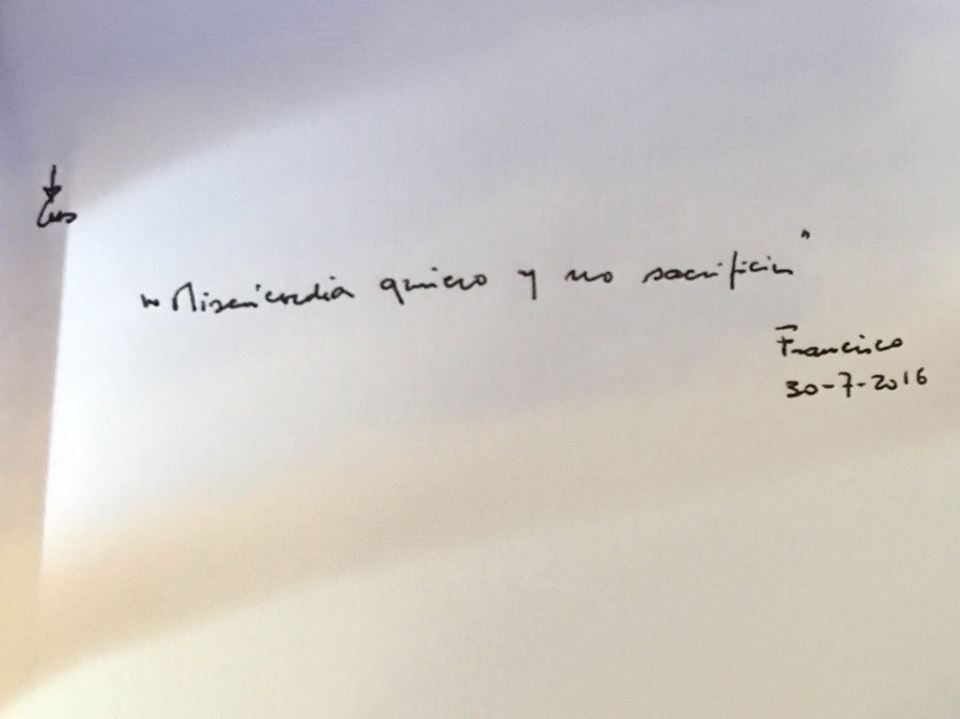 "Misericordia quiero y no sacrificio"
Francisco
30-7-2016